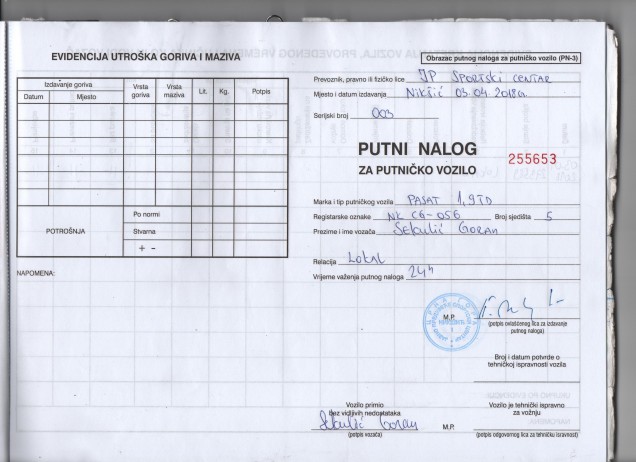 EVIDENCIJA UTROŠKA GORIVA I MAZIVA
Izdavanje goriva
Datum
Mjesto
Vrsta goriva
Vrsta maziva
Lit.
Kg.
Potpis
POTROŠNJA
Po normi
Stvarna
+ -
NAPOMENA:
Obrazac putnog naloga za putničko vozilo (PN-3)
Prevoznik, pravno ili fizičko lice JP SPORTSKI CENTAR
Mjesto i datum izdavanja Nikšić 03.04.2018
Serijski broj 003
PUTNI NALOG
255653
ZA PUTNIČKO VOZILO
Marka i tip putničkog vozila PASAT 1,9TD
Registarske oznake NK CG-056 Broj sjedišta 5
Prezime i ime vozača Sekulić Goran
Relacija Lokal
Vrijeme važenja putnog naloga 24h
M.P.
(potpis ovlašćenog lica za izdavanje
putnog naloga)
Broj i datum potvrde o
tehničkoj ispravnosti vozila
Vozilo primio
bez vidljivih nedostataka
Sekulić Goran
(potpis vozača)
Vozilo je tehnički ispravno
za vožnju
M.P.
(potpis odgovornog lica za tehničku ispravnost)